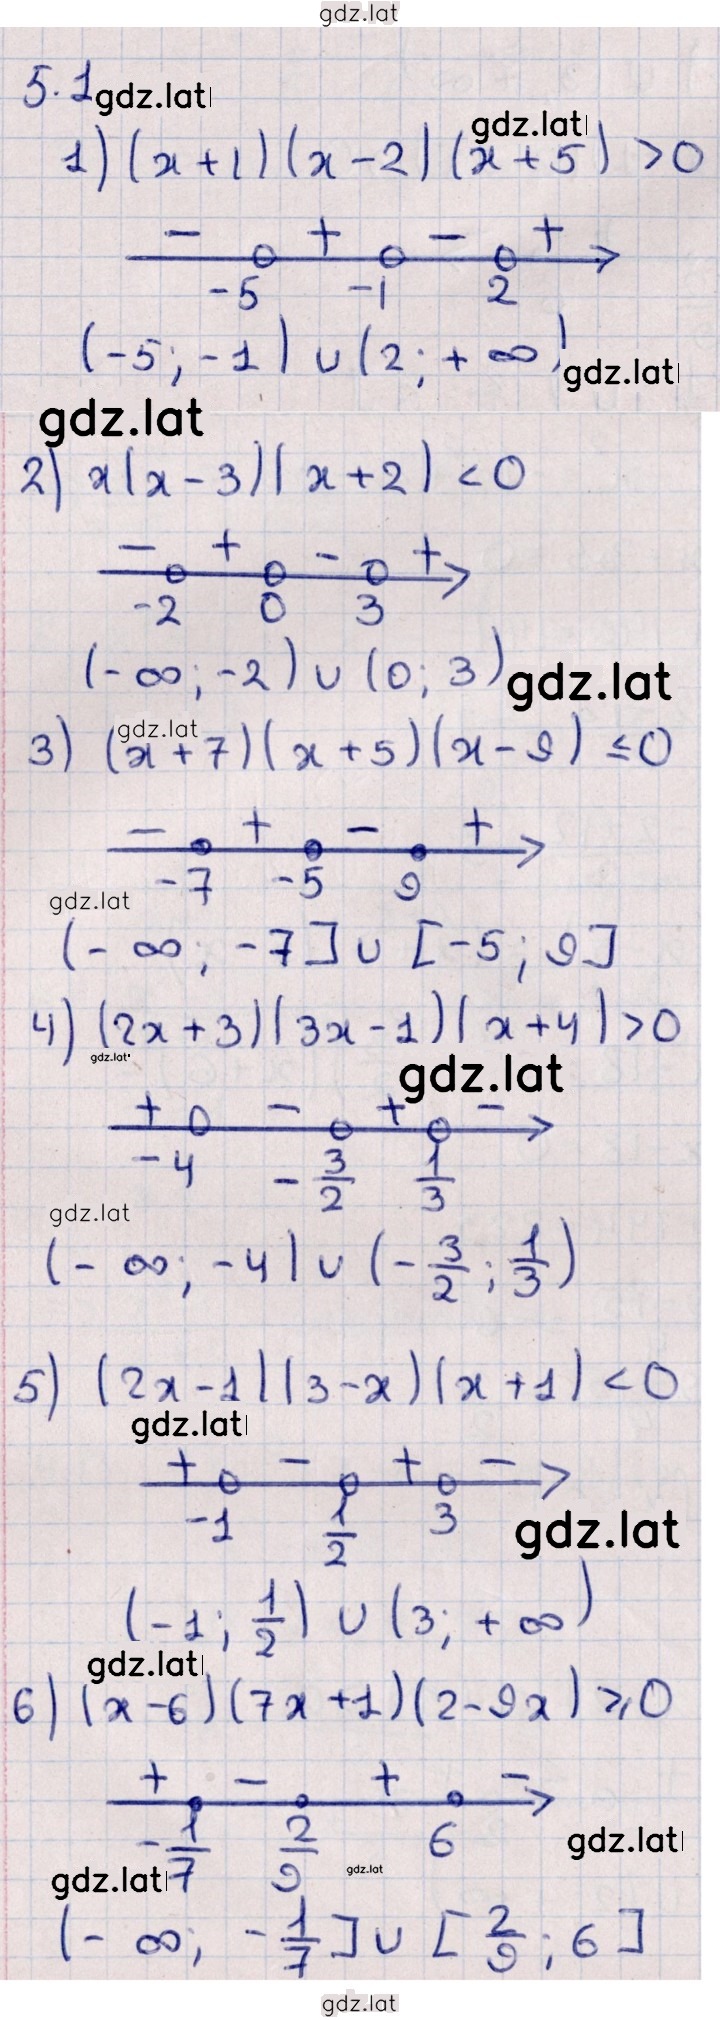 gdz.lat
5.1 gdz.lat
gdz.lat
1) (x+1)(x-2)(x+5) >0
- + - +
-5 -1 2
(-5; -1) ∪ (2; +∞)
gdz.lat
gdz.lat
2) x(x-3)(x+2) <0
- + - +
-2 0 3
(-∞; -2) ∪ (0; 3)
gdz.lat
gdz.lat
3) (x+7)(x+5)(x-9) ≤0
- + - +
-7 -5 9
gdz.lat
(-∞; -7] ∪ [-5; 9]
4) (2x+3)(3x-1)(x+4) >0
gdz.lat
gdz.lat
+ - + -
-4 -3/2 1/3
gdz.lat
(-∞; -4) ∪ (-3/2; 1/3)
5) (2x-1)(3-x)(x+1) <0
gdz.lat
+ - + -
-1 1/2 3
gdz.lat
(-1; 1/2) ∪ (3; +∞)
gdz.lat
6) (x-6)(7x+1)(2-9x) ≥0
+ - + -
-1/7 2/9 6
gdz.lat
gdz.lat
gdz.lat
(-∞; -1/7] ∪ [2/9; 6]
gdz.lat